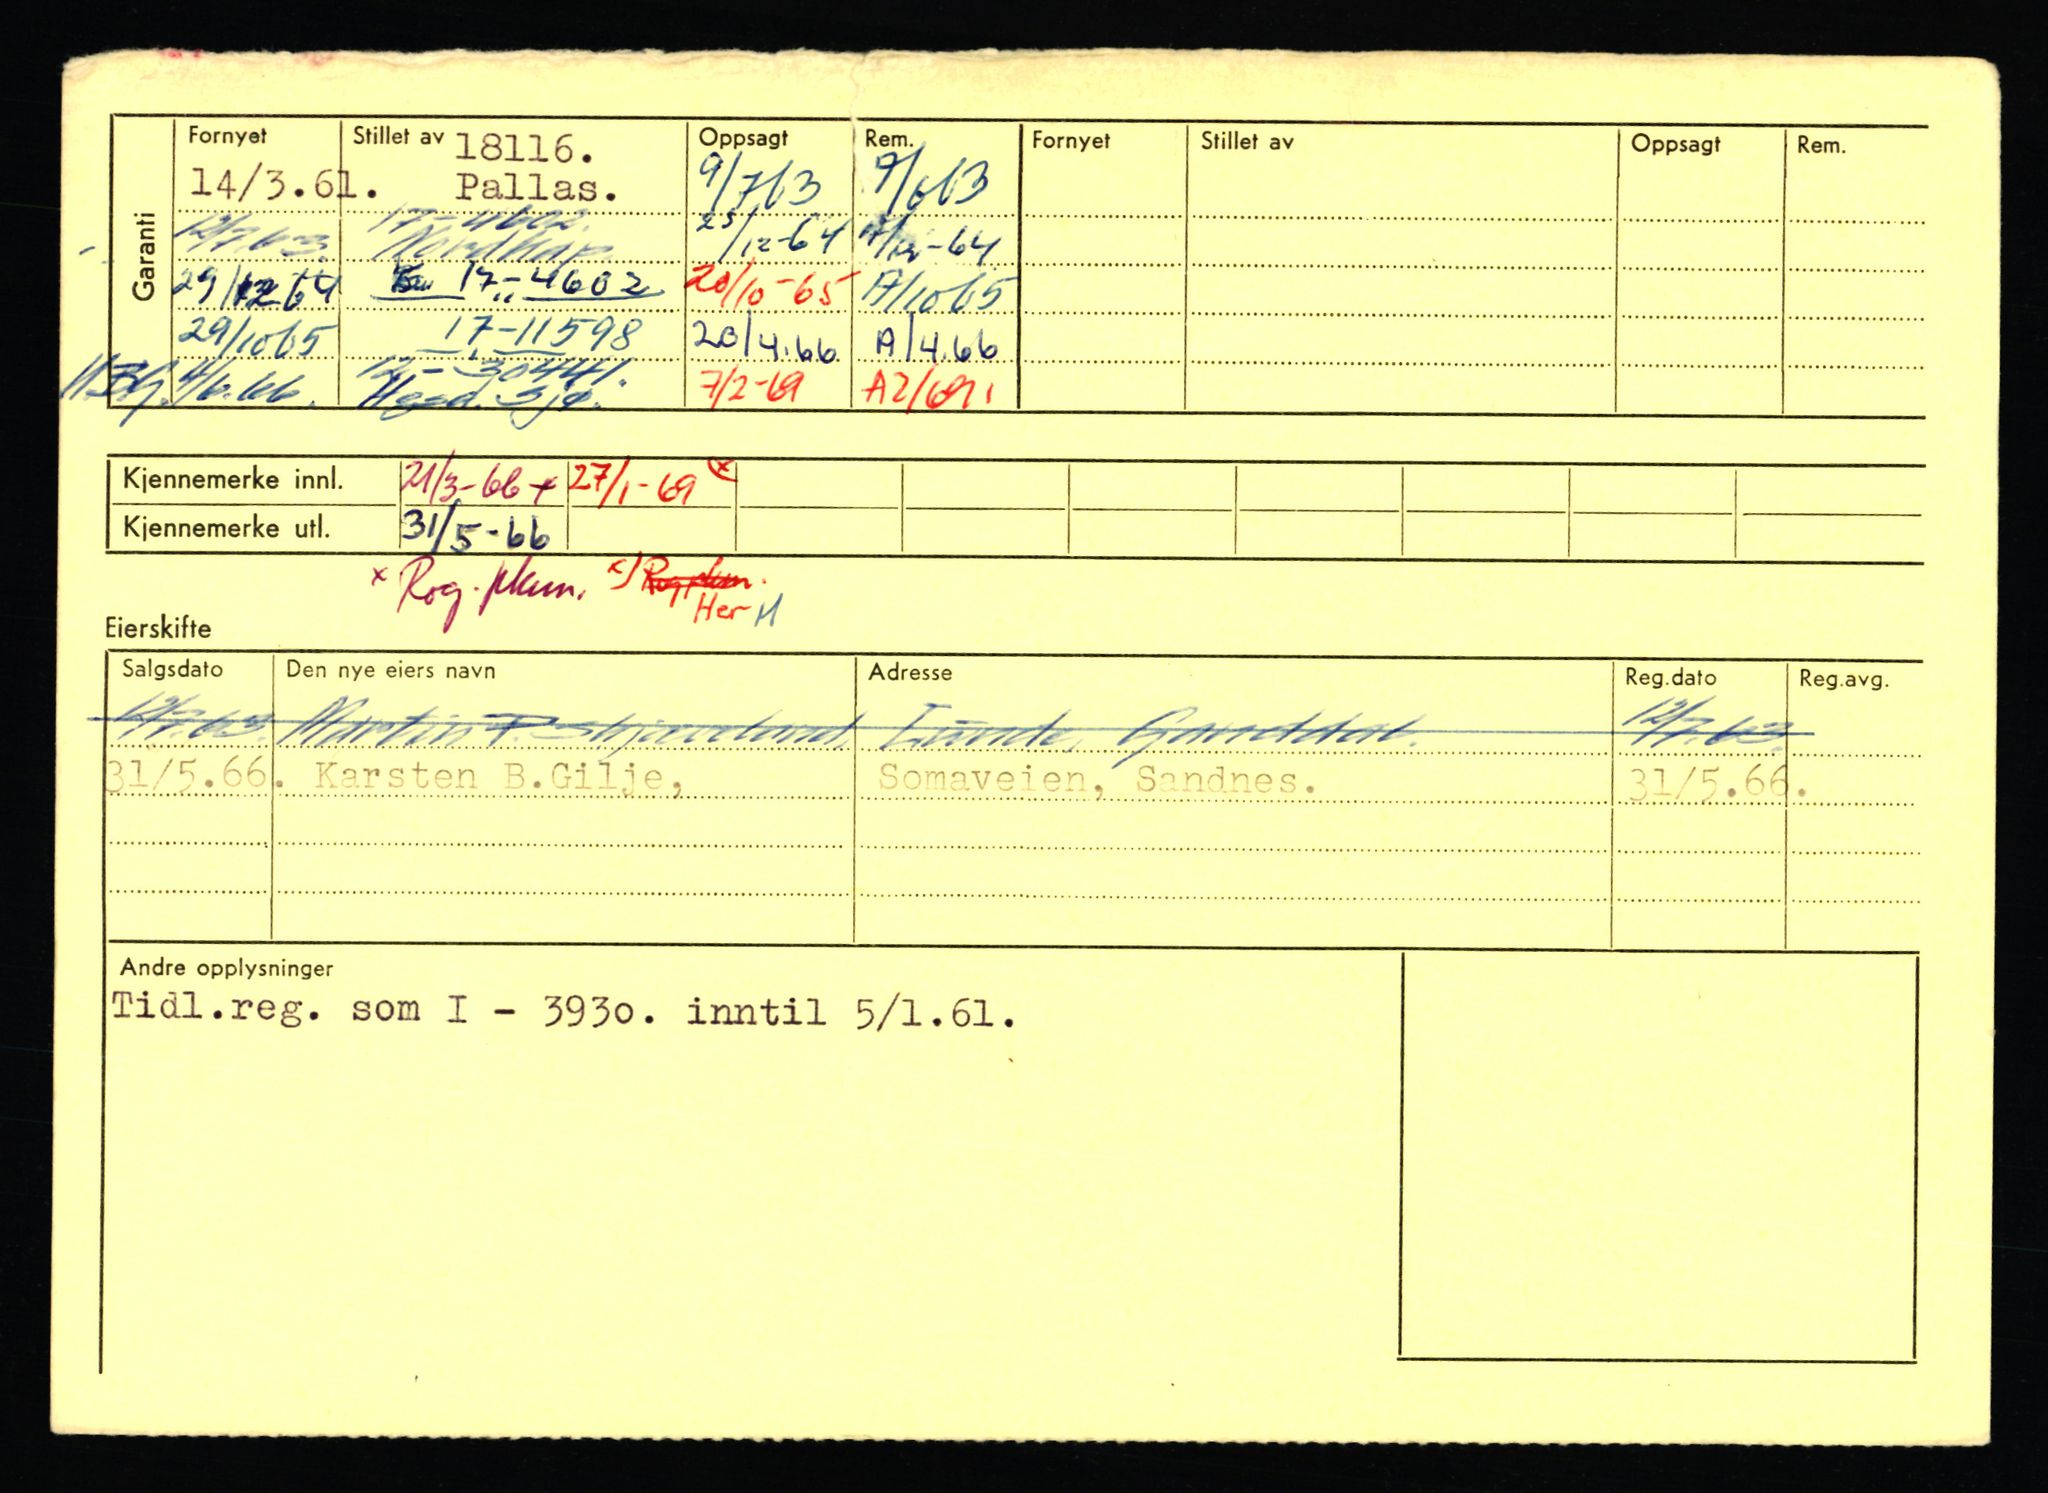 Garanti
Fornyet Stillet av Oppsagt Rem. Fornyet Stillet av Oppsagt Rem.
14/3.61. 18116. Pallas. 9/7 63 9/6 63
12/7.63. 17-4602. Nordkap. 23/12-64 /12-64
29/12 64 17-4602 20/10-65 A/10 65
29/10 65 17-11598 20/4.66 A/4.66
4/6.66. 30441. Sjø. 7/2-69 A2/69
Kjennemerke innl. 21/3-66 x 27/1-69 x
Kjennemerke utl. 31/5-66
x Rog. x)
Her H
Eierskifte
Salgsdato Den nye eiers navn Adresse Reg.dato Reg.avg.
12/7.63. Martin P. Skjæveland, Lunde, Ganddal. 12/7.63.
31/5.66. Karsten B.Gilje, Somaveien, Sandnes. 31/5.66.
Andre opplysninger
Tidl.reg. som I - 3930. inntil 5/1.61.